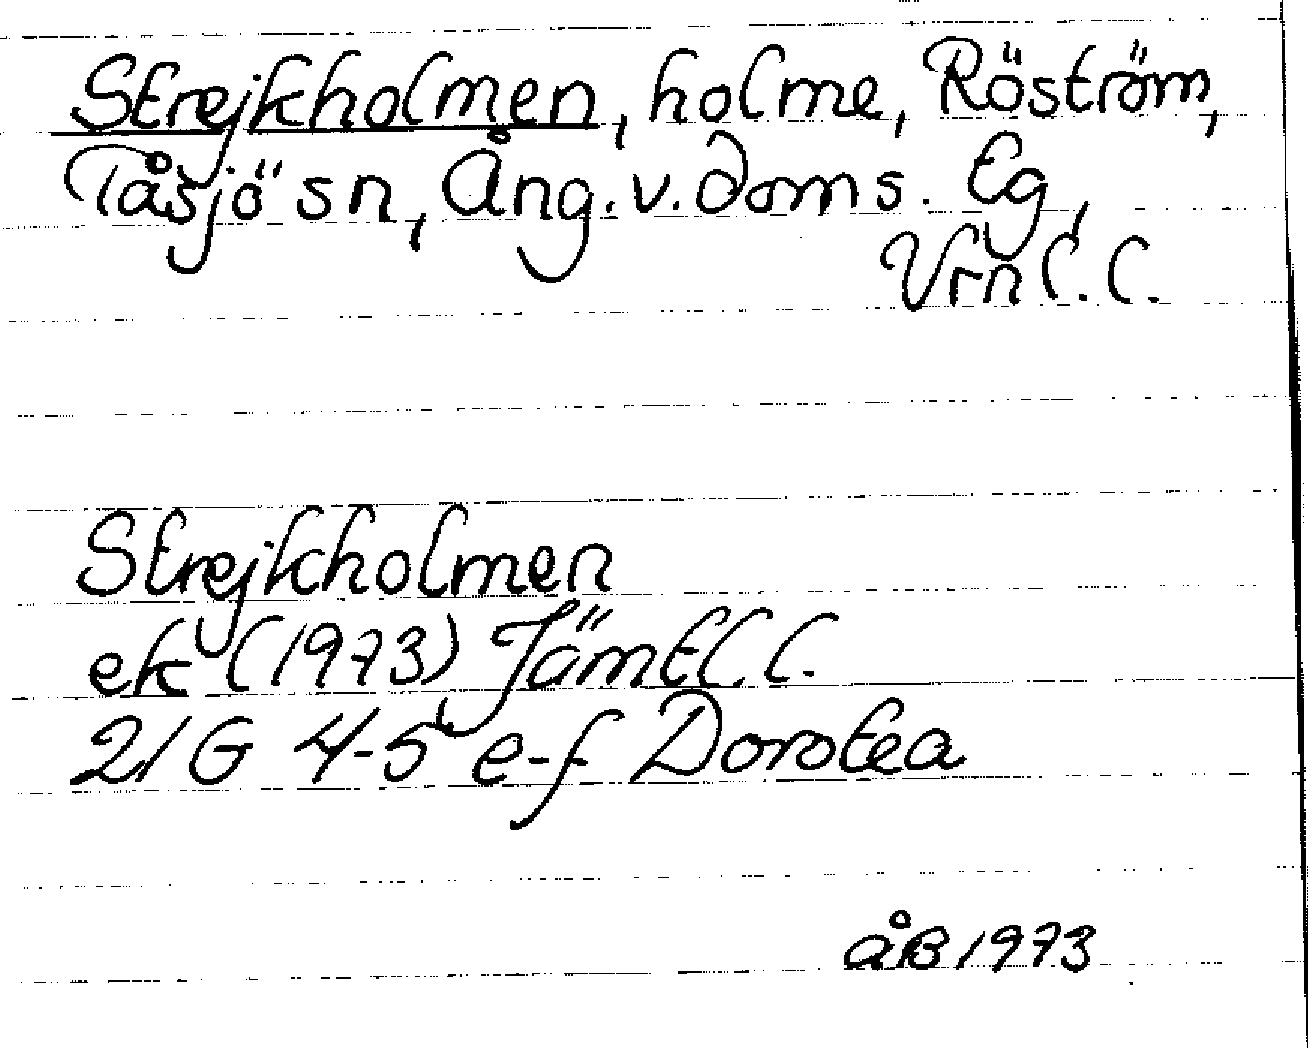 Strejkholmen, holme, Röström,
Tåsjö sn, Ång. v. doms. Lg,
Vrnl. l.
Strejkholmen
ek (1973) Jämtl l.
21G 4-5 e-f Dorotea
åB 1973